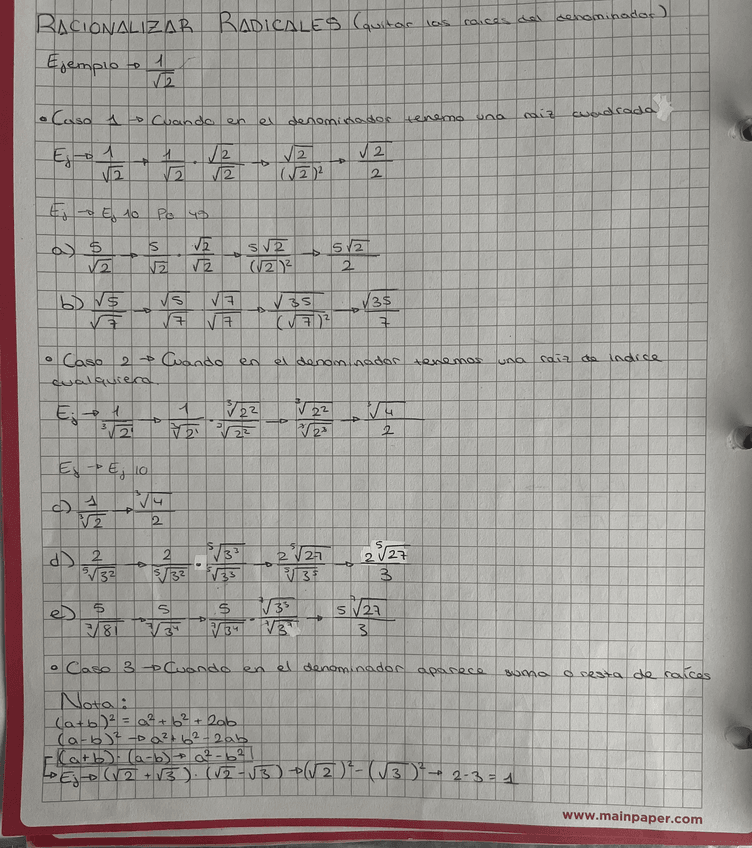 RACIONALIZAR RADICALES (quitar las raices del denominador)
Ejemplo → 1/√2
• Caso 1 → Cuando en el denominador tenemo una raiz cuadrada
Ej → 1/√2 → 1/√2 · √2/√2 → √2/(√2)² → √2/2
Ej → Ej 10 Pg 49
a) 5/√2 → 5/√2 · √2/√2 → 5√2/(√2)² → 5√2/2
b) √5/√7 → √5/√7 √7/√7 → √35/(√7)² → √35/7
• Caso 2 → Cuando en el denominador tenemos una raiz de indice
cualquiera.
Ej → 1/∛2¹ → 1/∛2¹ · ∛2²/∛2² → ∛2²/∛2³ → ∛4/2
Ej → Ej 10
c) 1/∛2 → ∛4/2
d) 2/⁵√3² → 2/⁵√3² · ⁵√3³/⁵√3³ → 2⁵√27/⁵√3⁵ → 2⁵√27/3
e) 5/⁷√81 → 5/⁷√3⁴ → 5/⁷√3⁴ · ⁷√3³/⁷√3³ → 5⁷√27/3
• Caso 3 → Cuando en el denominador aparece suma o resta de raíces
Nota:
(a+b)² = a² + b² + 2ab
(a-b)² → a² + b² - 2ab
(a+b) · (a-b) → a² - b²
↳ Ej → (√2 + √3) · (√2 - √3) → (√2)² - (√3)² → 2-3 = 1
www.mainpaper.com